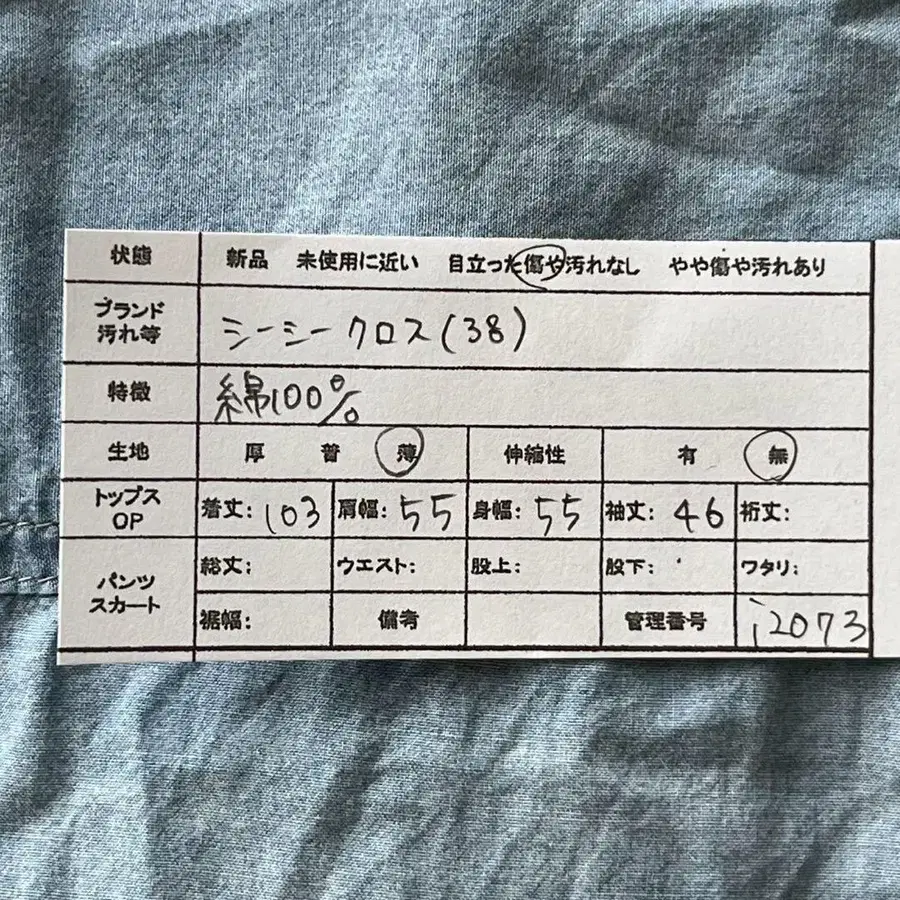 状態 新品 未使用に近い 目立った傷や汚れなし やや傷や汚れあり
ブランド
汚れ等
シーシークロス(38)
特徴 綿100%
生地 厚 普 薄 伸縮性 有 無
トップス
OP
着丈: 103 肩幅: 55 身幅: 55 袖丈: 46 裄丈:
パンツ
スカート
総丈: ウエスト: 股上: 股下: ワタリ:
裾幅: 備考 管理番号 i2073